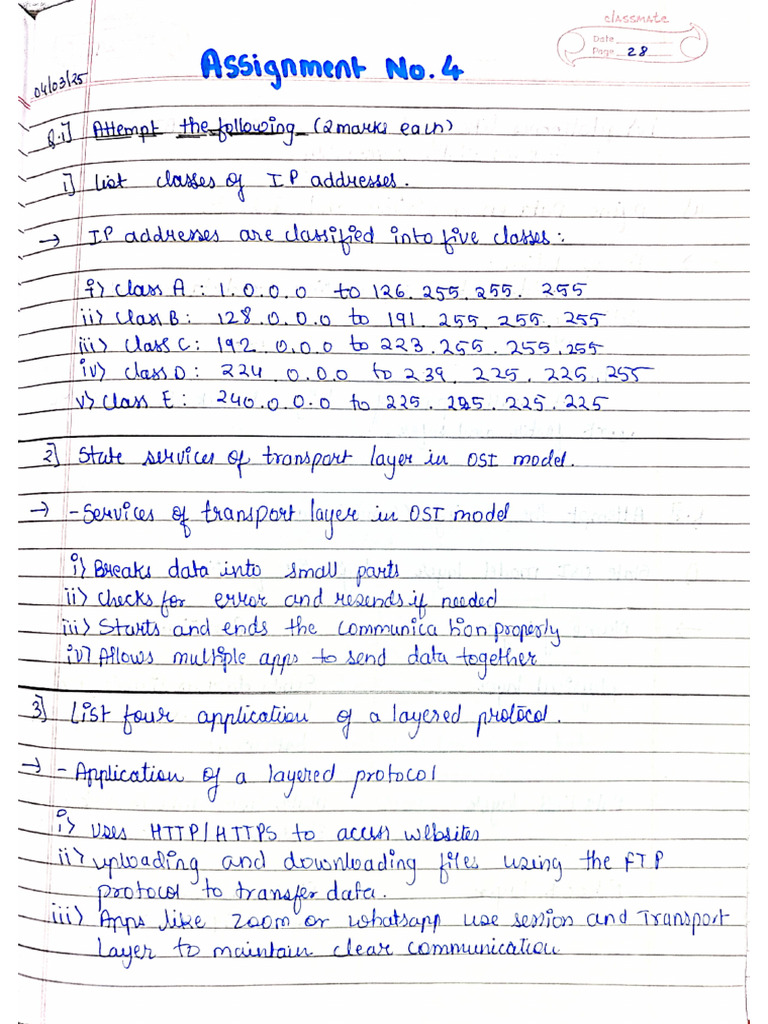 classmate
Date
Page 28
04/03/25
Assignment No. 4
Q.1] Attempt the following (2 marks each)
i] List classes of IP addresses.
→ IP addresses are classified into five classes:
i) Class A : 1.0.0.0 to 126.255.255.255
ii) Class B: 128.0.0.0 to 191.255.255.255
iii) Class C: 192.0.0.0 to 223.255.255.255
iv) Class D: 224.0.0.0 to 239.225.225.255
v) Class E: 240.0.0.0 to 225.225.225.225
2] State services of transport layer in OSI model.
→ - Services of transport layer in OSI model
i) Breaks data into small parts
ii) checks for error and resends if needed
iii) Starts and ends the communication properly
iv) Allows multiple apps to send data together
3] List four application of a layered protocol.
→ - Application of a layered protocol
i) Uses HTTP/HTTPS to access websites
ii) uploading and downloading files using the FTP
protocol to transfer data.
iii) Apps like zoom or whatsapp use session and Transport
Layer to maintain clear communication